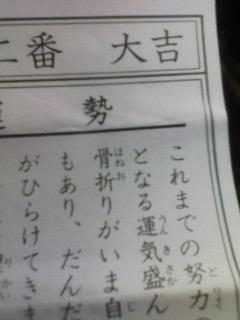 二番 大吉
勢
これまでの努力の
となる運気盛ん
骨折りがいま自
もあり、だんだ
がひらけてきま